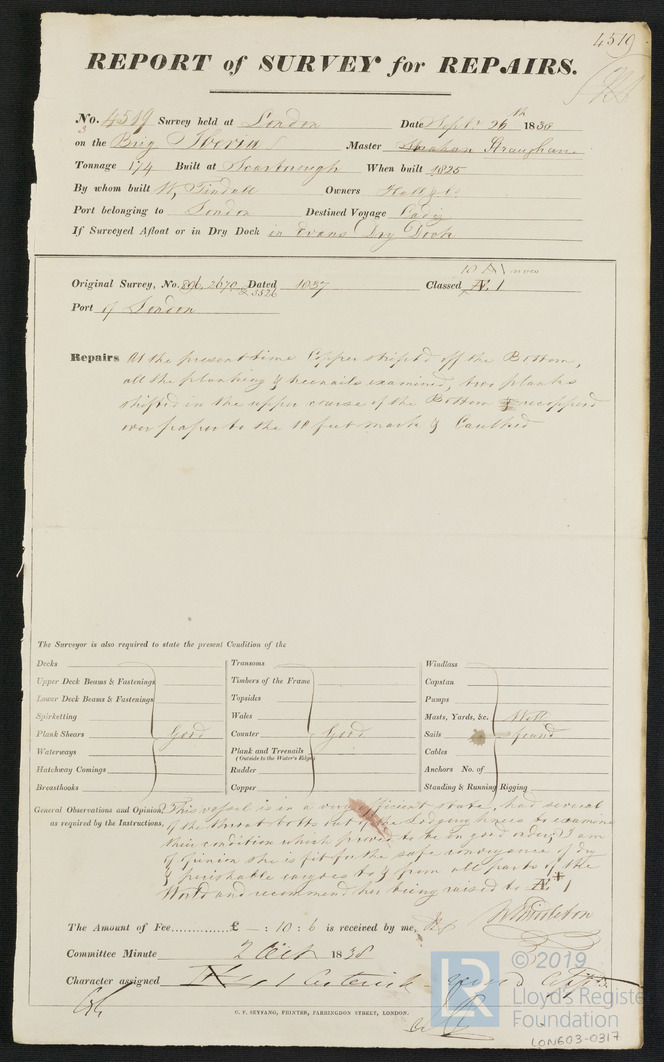 4519
REPORT of SURVEY for REPAIRS.
No. 4519 Survey held at London Date Sept. 26th 1838
on the Brig Iberia Master Straughan
Tonnage 174 Built at Scarborough When built 1825
By whom built W. Tindall Owners Hall & Co
Port belonging to London Destined Voyage Cadiz
If Surveyed Afloat or in Dry Dock in Evans Dry Dock
10 A1
Original Survey, No. 896, 2670 & 3526 Dated 1837 Classed Æ 1
Port of London
Repairs At the present time Copper stript'd off the Bottom,
all the planking & treenails examined, two planks
shifted in the upper course of the Bottom & recopper'd
over paper to the 10 feet mark & Caulked
The Surveyor is also required to state the present Condition of the
Decks
Upper Deck Beams & Fastenings
Lower Deck Beams & Fastenings
Spirketting
Plank Shears Good
Waterways
Hatchway Comings
Breasthooks
Transoms
Timbers of the Frame
Topsides
Wales
Counter Good
Plank and Treenails
(Outside to the Water's Edge)
Rudder
Copper
Windlass
Capstan
Pumps
Masts, Yards, &c. Well
Sails found
Cables
Anchors No. of
Standing & Running Rigging
General Observations and Opinion, This vessel is in a very efficient state, had several
as required by the Instructions, of the throat bolts out of the Lodging knees to examine
their condition which proved to be in good order; I am
of opinion she is fit for the safe conveyance of dry
& perishable cargoes to & from all parts of the
World and recommend her being raised to Æ* 1
The Amount of Fee £ — : 10 : 6 is received by me, W Middleton
Committee Minute 2 Oct 1838
Character assigned 1 Asterisk
C. F. SEYFANG, PRINTER, FARRINGDON STREET, LONDON.
LR
©2019
Lloyd's Register
Foundation
LON603-0317